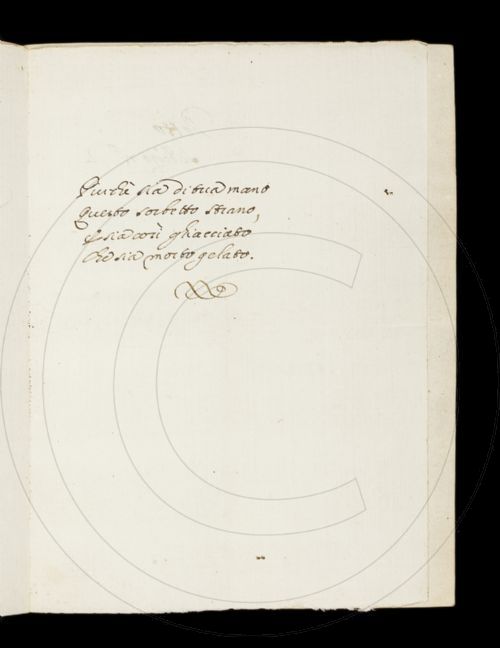 Purchè sia di tua mano
Questo sorbetto strano,
E sia così ghiacciato
Che sia molto gelato.